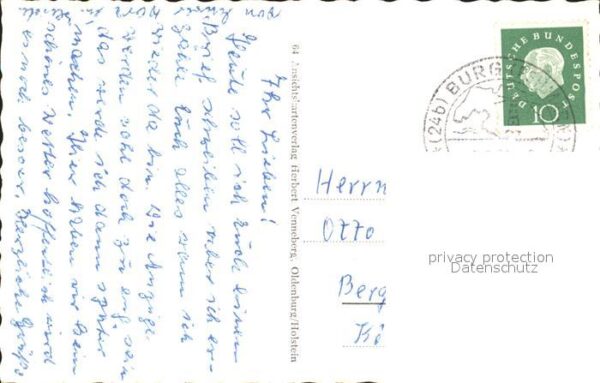 Ihr Lieben!
Heute soll ich Euch einen
Brief schreiben aber ich er-
zähle Euch alles wenn ich
wieder da bin. Die Anzüge
werden wohl doch zu eng sein
das werde ich dann später
machen. Hier haben wir kein
schönes Wetter hoffentlich wird
es noch besser, Herzliche Grüße
von
64 Ansichtskartenverlag Herbert Venneberg, Oldenburg/Holstein
DEUTSCHE BUNDESPOST
10
(24b) BURG
Herrn
Otto
Berg
privacy protection
Datenschutz